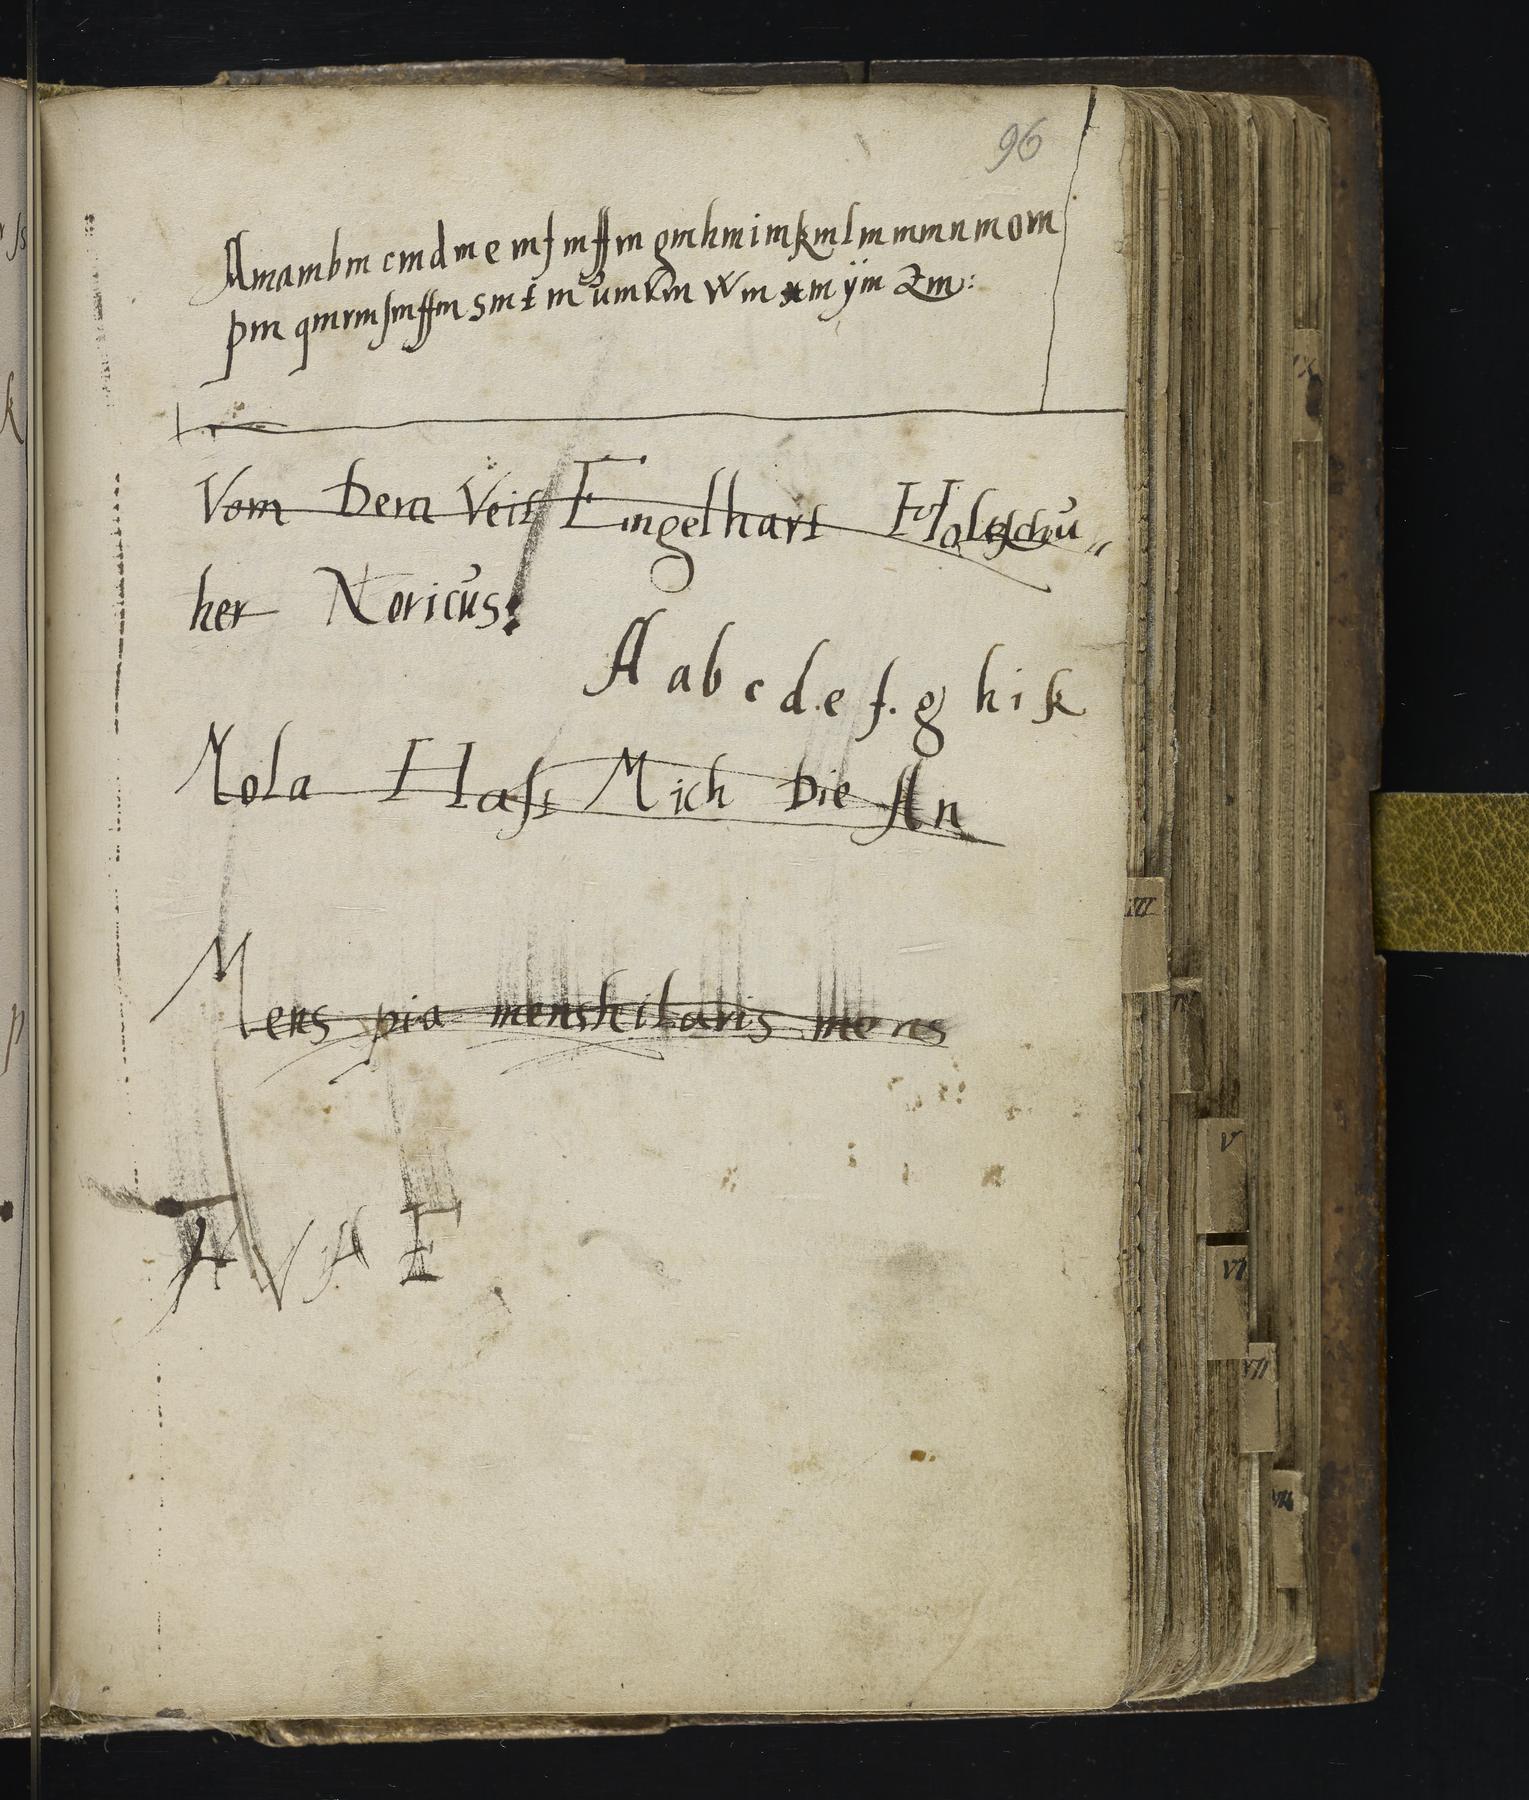 96
Amambm cmdmemfmffmgmhmimkmlmmmnmom
pm qmrmſmffmsmtmŭmkmwmxmÿmzm:
Vom Dem Veit Engelhart Holtzschŭ„
her Noricŭs:
A a b c d.e f. g h i k
Hast Mich Die An
Mens pia menshilaris mens
V A E
III
IV
V
VI
VII
IX
k
p